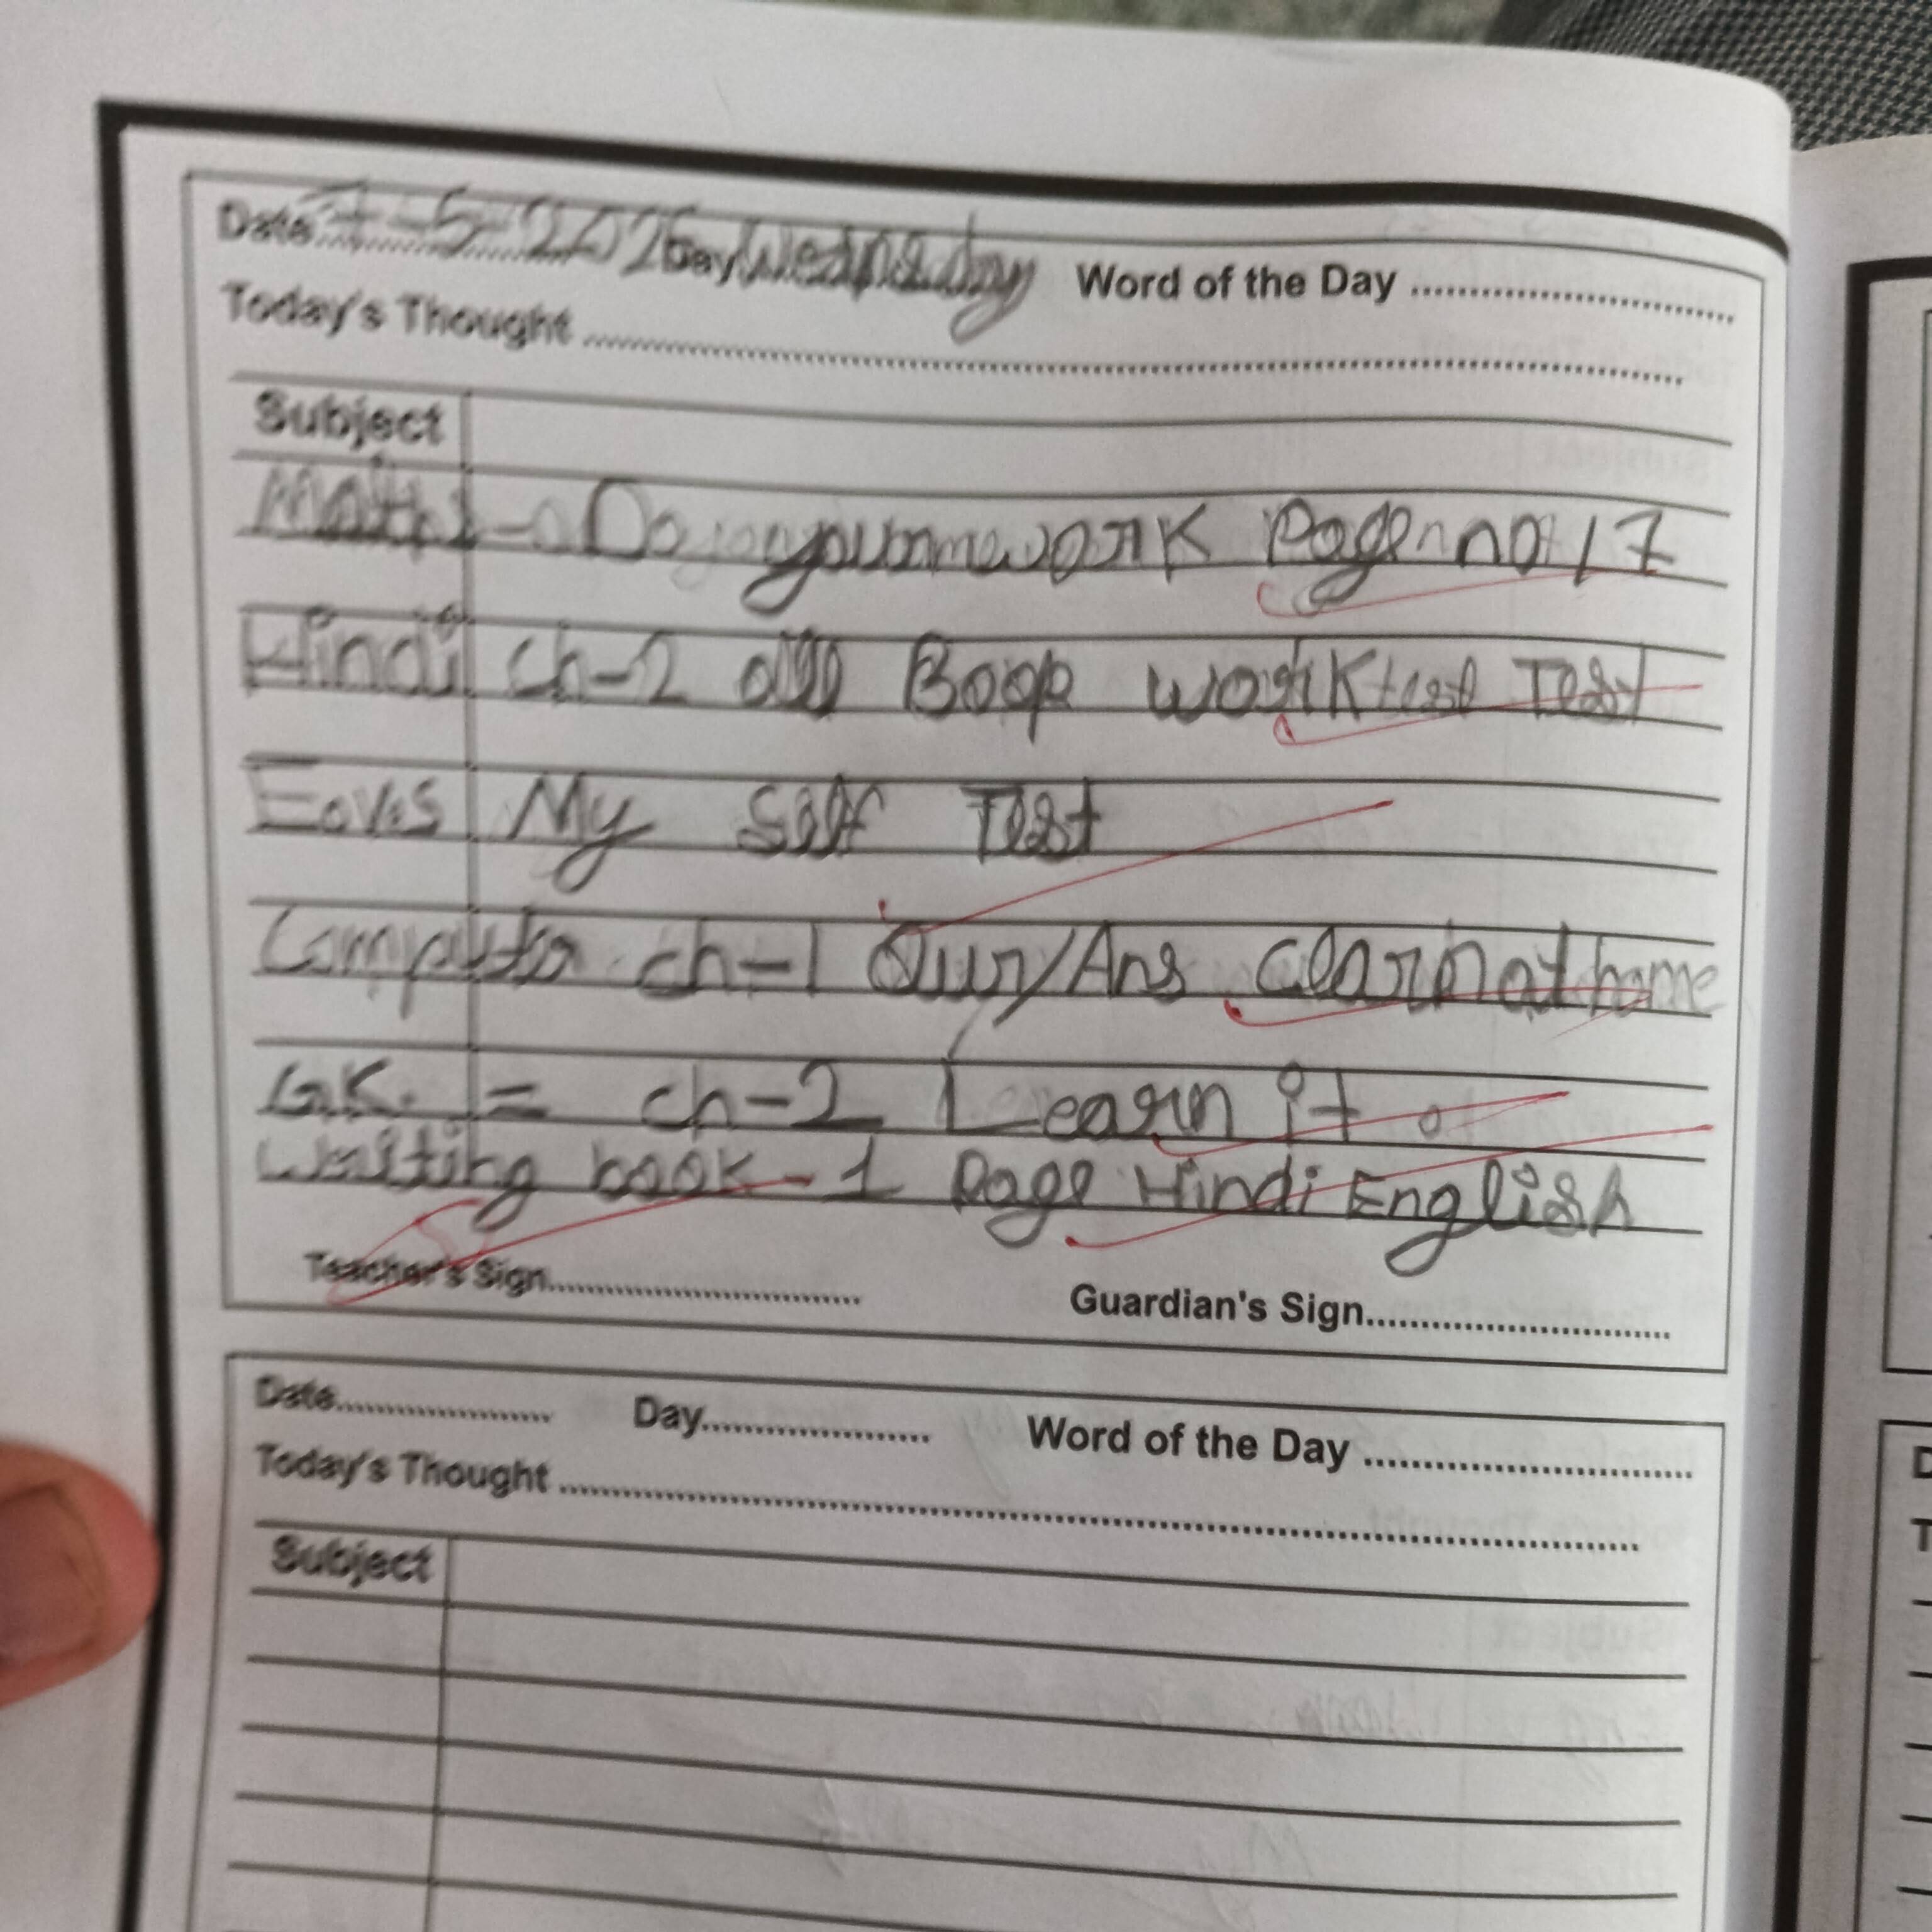 Date 7-5-2025 Day Wednesday Word of the Day
Today's Thought
Subject
Maths - Do your work Page no 17
Hindi ch-2 all Book work test Test
E.V.S My Self Test
Computer ch-1 Que/Ans clearn at home
G.K. = ch-2 Learn it
Writing book - 1 Page Hindi English
Teacher's Sign
Guardian's Sign
Date Day Word of the Day
Today's Thought
Subject